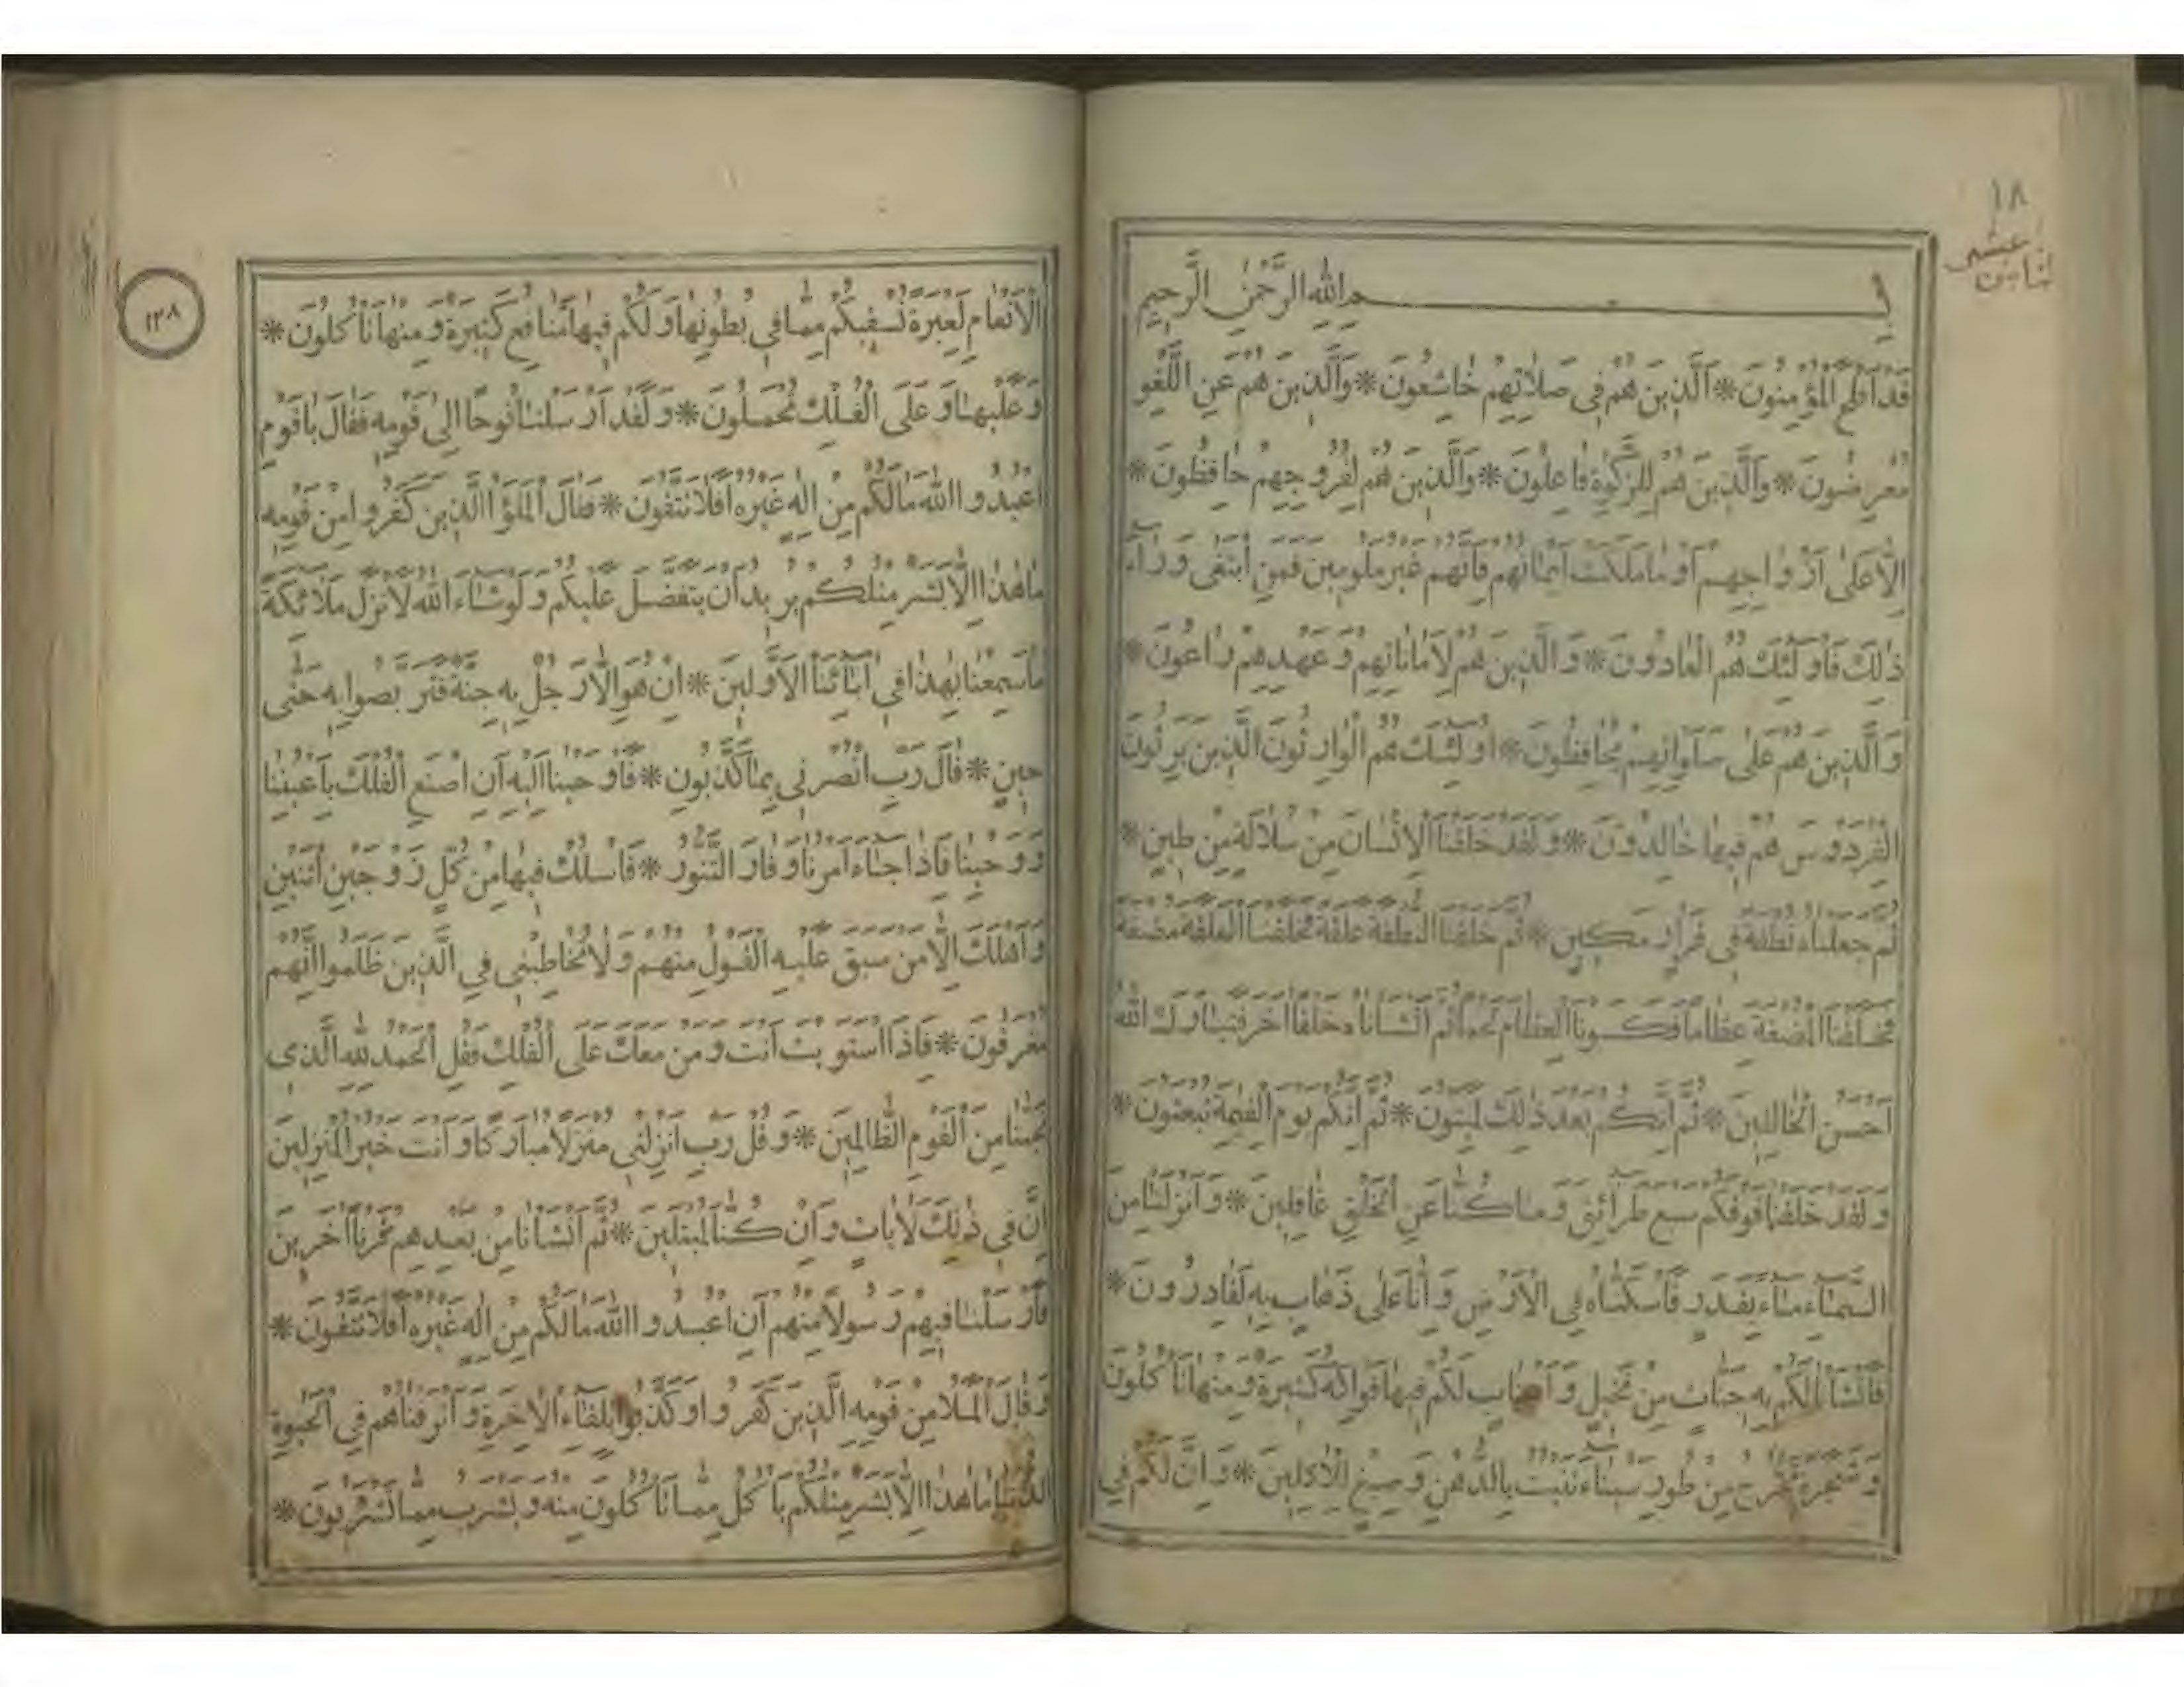 ١٨
ثامن عشر
بِسْمِ اللهِ الرَّحْمٰنِ الرَّحِيمِ
قَدْ اَفْلَحَ الْمُؤْمِنُونَ * اَلَّذِينَ هُمْ فِي صَلَاتِهِمْ خَاشِعُونَ * وَالَّذِينَ هُمْ عَنِ اللَّغْوِ
مُعْرِضُونَ * وَالَّذِينَ هُمْ لِلزَّكٰوةِ فَاعِلُونَ * وَالَّذِينَ هُمْ لِفُرُوجِهِمْ حَافِظُونَ *
اِلَّا عَلٰى اَزْوَاجِهِمْ اَوْ مَا مَلَكَتْ اَيْمَانُهُمْ فَاِنَّهُمْ غَيْرُ مَلُومِينَ فَمَنِ ابْتَغٰى وَرَآءَ
ذٰلِكَ فَاُولٰئِكَ هُمُ الْعَادُونَ * وَالَّذِينَ هُمْ لِاَمَانَاتِهِمْ وَعَهْدِهِمْ رَاعُونَ *
وَالَّذِينَ هُمْ عَلٰى صَلَوَاتِهِمْ يُحَافِظُونَ * اُولٰئِكَ هُمُ الْوَارِثُونَ الَّذِينَ يَرِثُونَ
الْفِرْدَوْسَ هُمْ فِيهَا خَالِدُونَ * وَلَقَدْ خَلَقْنَا الْاِنْسَانَ مِنْ سُلَالَةٍ مِنْ طِينٍ *
ثُمَّ جَعَلْنَاهُ نُطْفَةً فِي قَرَارٍ مَكِينٍ * ثُمَّ خَلَقْنَا النُّطْفَةَ عَلَقَةً فَخَلَقْنَا الْعَلَقَةَ مُضْغَةً
فَخَلَقْنَا الْمُضْغَةَ عِظَامًا فَكَسَوْنَا الْعِظَامَ لَحْمًا ثُمَّ اَنْشَاْنَاهُ خَلْقًا اٰخَرَ فَتَبَارَكَ اللهُ
اَحْسَنُ الْخَالِقِينَ * ثُمَّ اِنَّكُمْ بَعْدَ ذٰلِكَ لَمَيِّتُونَ * ثُمَّ اِنَّكُمْ يَوْمَ الْقِيٰمَةِ تُبْعَثُونَ *
وَلَقَدْ خَلَقْنَا فَوْقَكُمْ سَبْعَ طَرَائِقَ وَمَا كُنَّا عَنِ الْخَلْقِ غَافِلِينَ * وَاَنْزَلْنَا مِنَ
السَّمَاءِ مَاءً بِقَدَرٍ فَاَسْكَنَّاهُ فِي الْاَرْضِ وَاِنَّا عَلٰى ذَهَابٍ بِهِ لَقَادِرُونَ *
فَاَنْشَاْنَا لَكُمْ بِهِ جَنَّاتٍ مِنْ نَخِيلٍ وَاَعْنَابٍ لَكُمْ فِيهَا فَوَاكِهُ كَثِيرَةٌ وَمِنْهَا تَاْكُلُونَ
وَشَجَرَةً تَخْرُجُ مِنْ طُورِ سَيْنَاءَ تَنْبُتُ بِالدُّهْنِ وَصِبْغٍ لِلْاٰكِلِينَ * وَاِنَّ لَكُمْ فِي
١٣٨
الْاَنْعَامِ لَعِبْرَةً نُسْقِيكُمْ مِمَّا فِي بُطُونِهَا وَلَكُمْ فِيهَا مَنَافِعُ كَثِيرَةٌ وَمِنْهَا تَاْكُلُونَ *
وَعَلَيْهَا وَعَلَى الْفُلْكِ تُحْمَلُونَ * وَلَقَدْ اَرْسَلْنَا نُوحًا اِلٰى قَوْمِهِ فَقَالَ يَا قَوْمِ
اعْبُدُوا اللهَ مَا لَكُمْ مِنْ اِلٰهٍ غَيْرُهُ اَفَلَا تَتَّقُونَ * فَقَالَ الْمَلَؤُا الَّذِينَ كَفَرُوا مِنْ قَوْمِهِ
مَا هٰذَا اِلَّا بَشَرٌ مِثْلُكُمْ يُرِيدُ اَنْ يَتَفَضَّلَ عَلَيْكُمْ وَلَوْ شَاءَ اللهُ لَاَنْزَلَ مَلَائِكَةً
مَا سَمِعْنَا بِهٰذَا فِي اٰبَائِنَا الْاَوَّلِينَ * اِنْ هُوَ اِلَّا رَجُلٌ بِهِ جِنَّةٌ فَتَرَبَّصُوا بِهِ حَتّٰى
حِينٍ * قَالَ رَبِّ انْصُرْنِي بِمَا كَذَّبُونِ * فَاَوْحَيْنَا اِلَيْهِ اَنِ اصْنَعِ الْفُلْكَ بِاَعْيُنِنَا
وَوَحْيِنَا فَاِذَا جَاءَ اَمْرُنَا وَفَارَ التَّنُّورُ * فَاسْلُكْ فِيهَا مِنْ كُلٍّ زَوْجَيْنِ اثْنَيْنِ
وَاَهْلَكَ اِلَّا مَنْ سَبَقَ عَلَيْهِ الْقَوْلُ مِنْهُمْ وَلَا تُخَاطِبْنِي فِي الَّذِينَ ظَلَمُوا اِنَّهُمْ
مُغْرَقُونَ * فَاِذَا اسْتَوَيْتَ اَنْتَ وَمَنْ مَعَكَ عَلَى الْفُلْكِ فَقُلِ الْحَمْدُ لِلّٰهِ الَّذِي
نَجّٰنَا مِنَ الْقَوْمِ الظَّالِمِينَ * وَقُلْ رَبِّ اَنْزِلْنِي مُنْزَلًا مُبَارَكًا وَاَنْتَ خَيْرُ الْمُنْزِلِينَ
اِنَّ فِي ذٰلِكَ لَاٰيَاتٍ وَاِنْ كُنَّا لَمُبْتَلِينَ * ثُمَّ اَنْشَاْنَا مِنْ بَعْدِهِمْ قَرْنًا اٰخَرِينَ
فَاَرْسَلْنَا فِيهِمْ رَسُولًا مِنْهُمْ اَنِ اعْبُدُوا اللهَ مَا لَكُمْ مِنْ اِلٰهٍ غَيْرُهُ اَفَلَا تَتَّقُونَ *
وَقَالَ الْمَلَاُ مِنْ قَوْمِهِ الَّذِينَ كَفَرُوا وَكَذَّبُوا بِلِقَاءِ الْاٰخِرَةِ وَاَتْرَفْنَاهُمْ فِي الْحَيٰوةِ
الدُّنْيَا مَا هٰذَا اِلَّا بَشَرٌ مِثْلُكُمْ يَاْكُلُ مِمَّا تَاْكُلُونَ مِنْهُ وَيَشْرَبُ مِمَّا تَشْرَبُونَ *